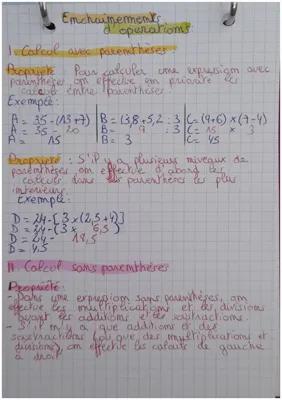 Enchainements
d'operations
I. Calcul avec parenthèses
Propriété : Pour calculer une expression avec
parenthèses, on effectue en priorité les
calculs entre parenthèses.
Exemple :
A = 35 - (13+7) | B = (3,8+5,2) : 3 | C = (9+6) × (7-4)
A = 35 - 20 | B = 9 : 3 | C = 15 × 3
A = 15 | B = 3 | C = 45
Propriété : S'il y a plusieurs niveaux de
parenthèses, on effectue d'abord les
calculs dans les parenthèses les plus
intérieures.
Exemple :
D = 24 - [3 × (2,5 + 4)]
D = 24 - (3 × 6,5)
D = 24 - 19,5
D = 4,5
II. Calcul sans parenthèses
Propriété :
- Dans une expression sans parenthèses, on
effectue les multiplications et les divisions
avant les additions et les soustractions.
- S'il n'y a que additions et des
soustractions (ou que des multiplications et
divisions), on effectue les calculs de gauche
à droite.